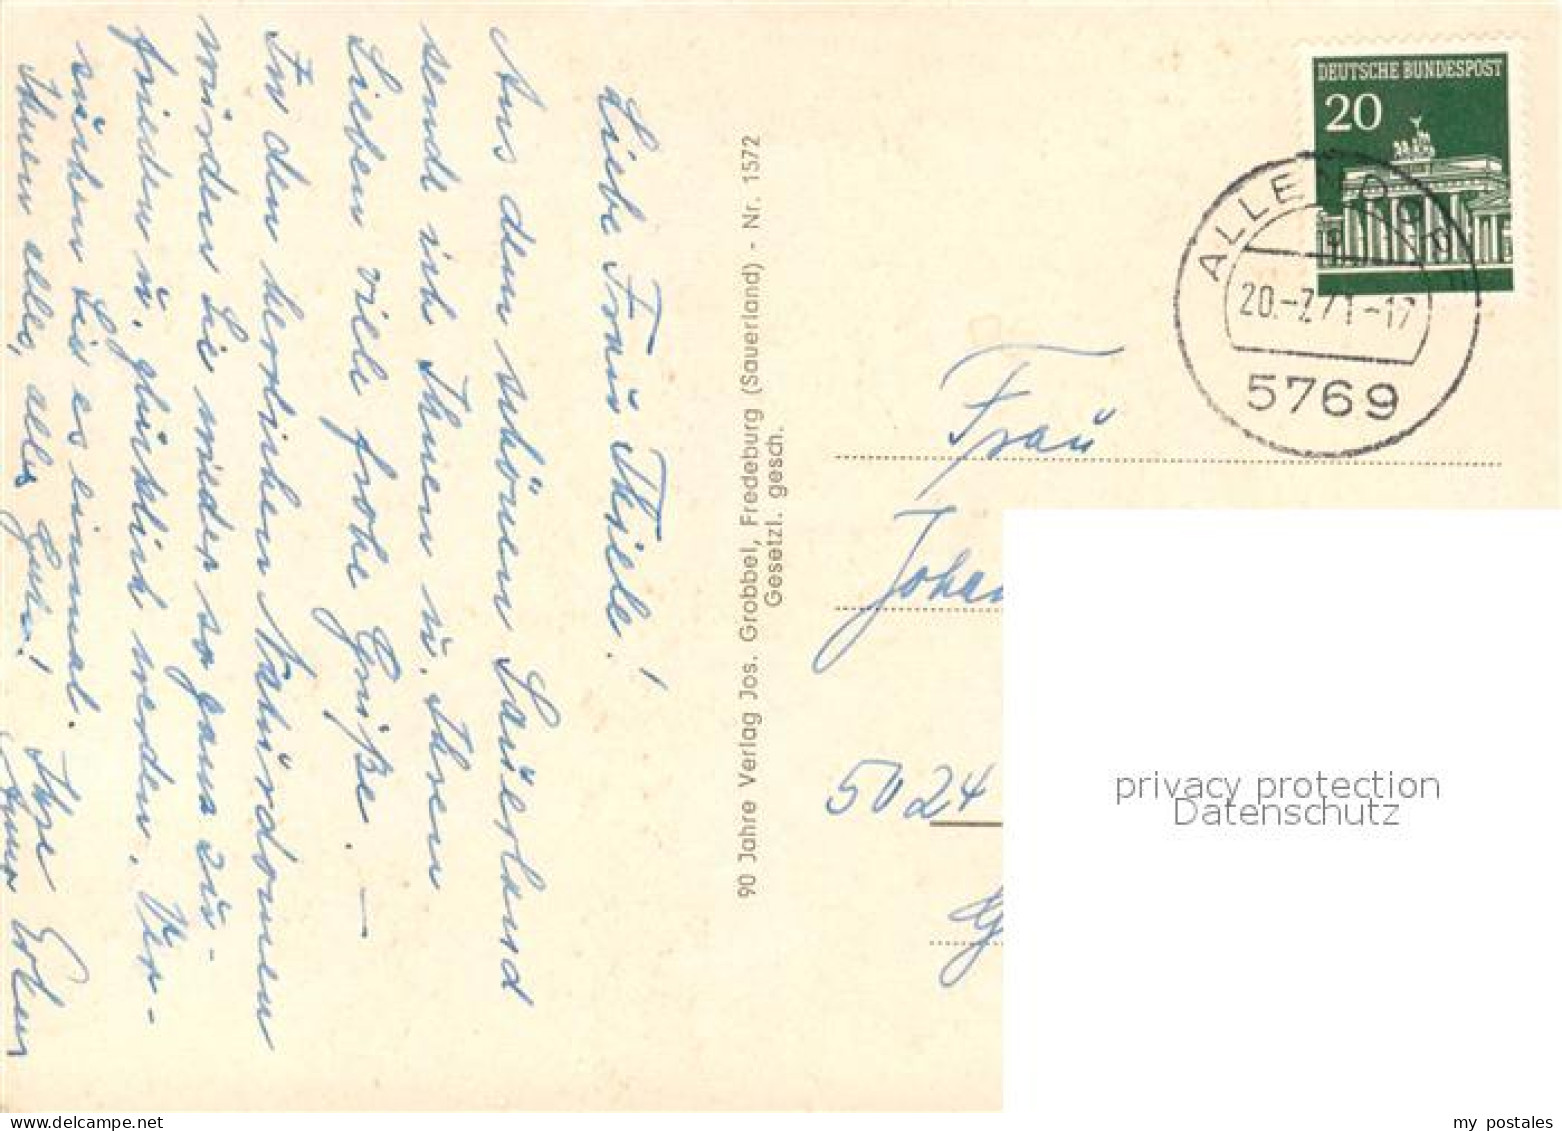 Liebe Frau Thiele!
Aus dem schönen Sauerland
sende ich Ihnen u. Ihren
Lieben viele frohe Grüße. —
In den herrlichen Naturdomen
würden Sie wieder so ganz zu-
frieden u. glücklich werden. Ver-
suchen Sie es einmal. Ihre
Ihnen alles, alles Gute!
90 Jahre Verlag Jos. Grobbel, Fredeburg (Sauerland) - Nr. 1572
Gesetzl. gesch.
DEUTSCHE BUNDESPOST
20
ALLENDORF
20.-7.71-17
5769
Frau
Johan
5024
privacy protection
Datenschutz
my postales